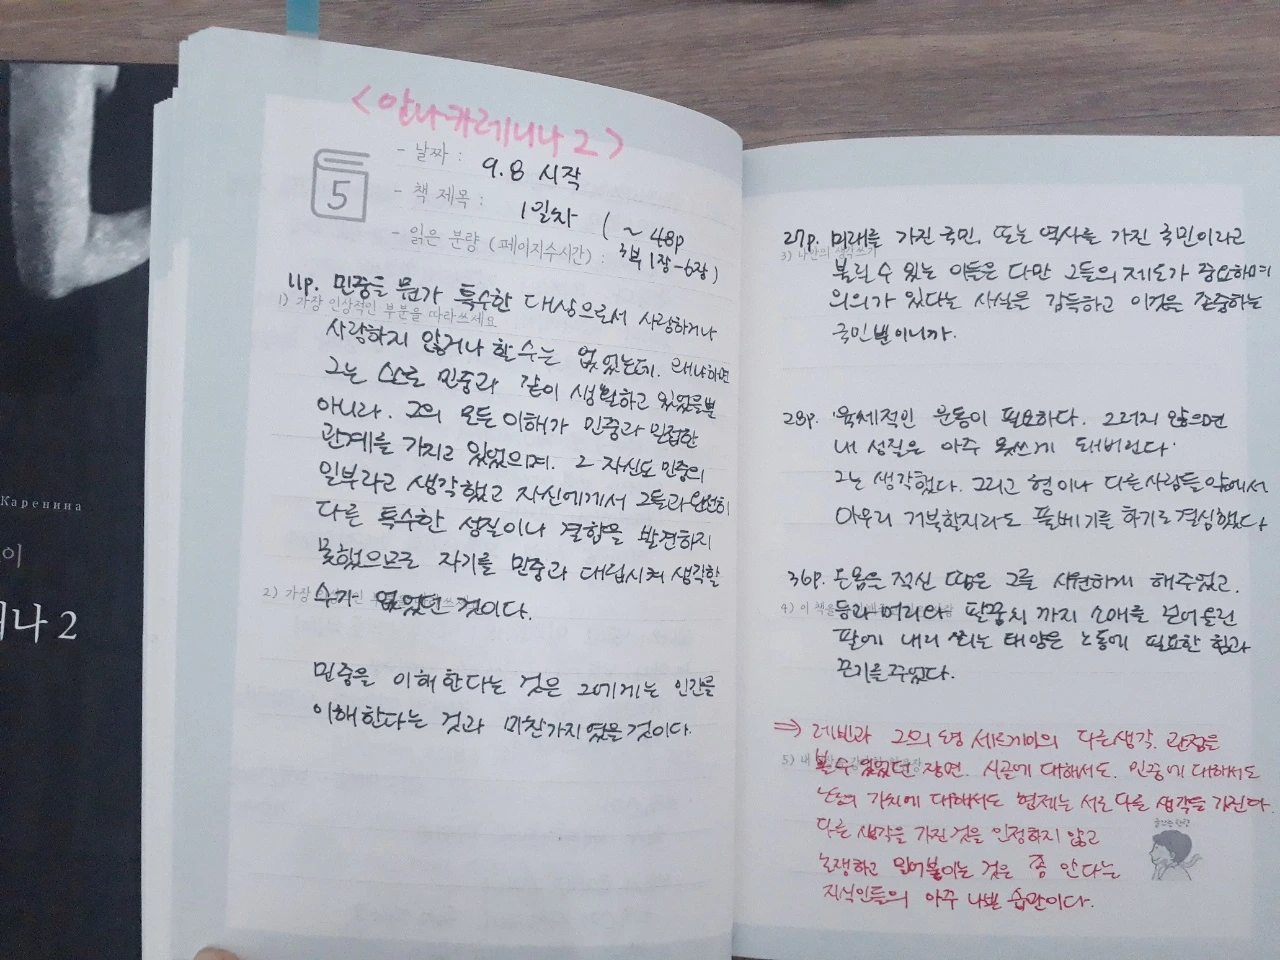 <안나카레니나 2>
- 날짜 : 9.8 시작
- 책 제목 : 1일차 ( ~ 48p
- 읽은 분량 (페이지수시간) : 3부 1장-6장)
5
11p. 민중을 뭔가 특수한 대상으로서 사랑하거나
1) 가장 인상적인 부분을 따라쓰세요
사랑하지 않거나 할 수는 없었는데. 왜냐하면
그는 스스로 민중과 같이 생활하고 있었을뿐
아니라. 그의 모든 이해가 민중과 밀접한
관계를 가지고 있었으며. 그 자신도 민중의
일부라고 생각했고 자신에게서 그들과 완전히
다른 특수한 성질이나 결함을 발견하지
못했으므로 자기를 민중과 대립시켜 생각할
2) 가장
수가 없었던 것이다.
민중을 이해한다는 것은 그에게는 인간을
이해한다는 것과 마찬가지였을것이다.
Каренина
이
나 2
27p. 미래를 가진 국민, 또는 역사를 가진 국민이라고
3) 나만의 생각쓰기
불릴 수 있는 이들은 다만 그들의 제도가 중요하며
의의가 있다는 사실을 감득하고 이것을 존중하는
국민뿐이니까.
28p. '육체적인 운동이 필요하다. 그러지 않으면
내 성질은 아주 못쓰게 돼버린다'
그는 생각했다. 그리고 형이나 다른사람들 앞에서
아무리 거북할지라도 풀베기를 하기로 결심했다
36p. 온몸을 적신 땀은 그를 시원하게 해주었고.
4) 이 책을
등과 머리와 팔꿈치 까지 소매를 걷어올린
팔에 내리 쬐는 태양은 노동에 필요한 힘과
끈기를 주었다.
⇒ 레빈과 그의 형 세르게이의 다른생각. 관점을
5) 내
볼수 있었던 장면. 시골에 대해서도. 민중에 대해서도
노동의 가치에 대해서도 형제는 서로 다른 생각을 가진다.
다른 생각을 가진것을 인정하지 않고
논쟁하고 밀어붙이는 것은 좀 안다는
지식인들의 아주 나쁜 습관이다.